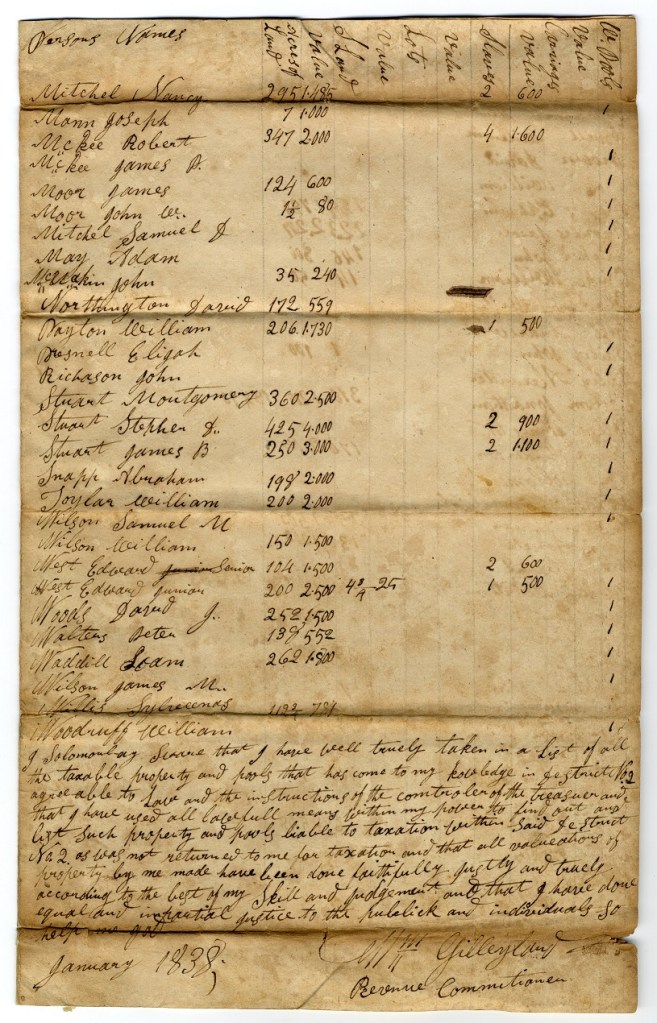 Persons Names Acres of Land Value S Land Value Lots Value Slaves Value Carriages Value W Pools
Mitchel Nancy 295 1.485 2 600
Mann Joseph 7 1.000 1
Mckee Robert 347 2.000 4 1.600
Mckee James A. 1
Moor James 124 600 1
Moor John W. 1½ 80 1
Mitchel Samuel D 1
May Adam 1
John 35 240 1
Northington David 172 559
Payton William 206 1.730 1 500
Presnell Elijah 1
Richason John 1
Stuart Montgomery 360 2.500
Stuart Stephen D. 425 4.000 2 900 1
Stuart James B 250 3.000 2 1.100 1
Snapp Abraham 198 2.000 1
Toylar William 200 2.000 1
Wilson Samuel M 1
Wilson William 150 1.500
West Edward Senior 104 1.500 2 600
West Edward Junior 200 2.500 25 1 500 1
Woods David J. 252 1.500 1
Walters Peter 138 552 1
Waddill Loam 262 1.800 1
Wilson James M. 1
Willis
Woodruff William 1
I Solomonlay Sweare that I have well truely taken in a List of all
the taxable property and pools that has come to my knowledge in destrict No 2
agreeable to Law and the instructions of the comtroler of the treasuer and
that I have used all lawfull means within my power to find out and
list Such property and pools liable to taxation within said destrict
No. 2 as was not returned to me for taxation and that all valueations of
property by me made have been done faithfully justly and truely
according to the best of my Skill and judgement and that I have done
equal and inpartial justice to the publick and individuals So
help me god
January 1838 Gilleyland
Revenue Commitioner